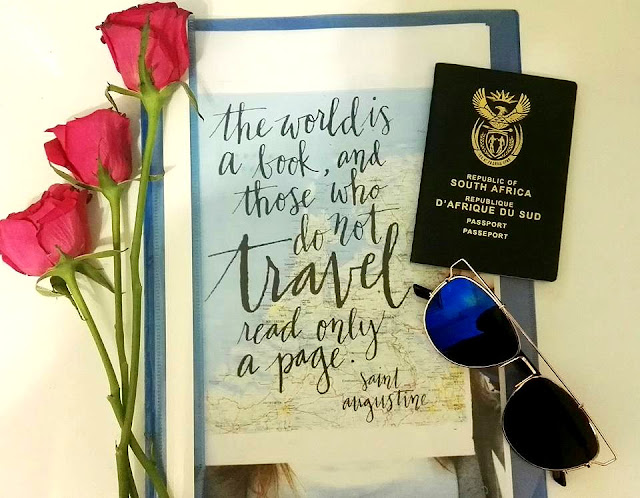 the world is
a book, and
those who
do not
travel
read only
a page.
saint
augustine
REPUBLIC OF
SOUTH AFRICA
REPUBLIQUE
D'AFRIQUE DU SUD
PASSPORT
PASSEPORT